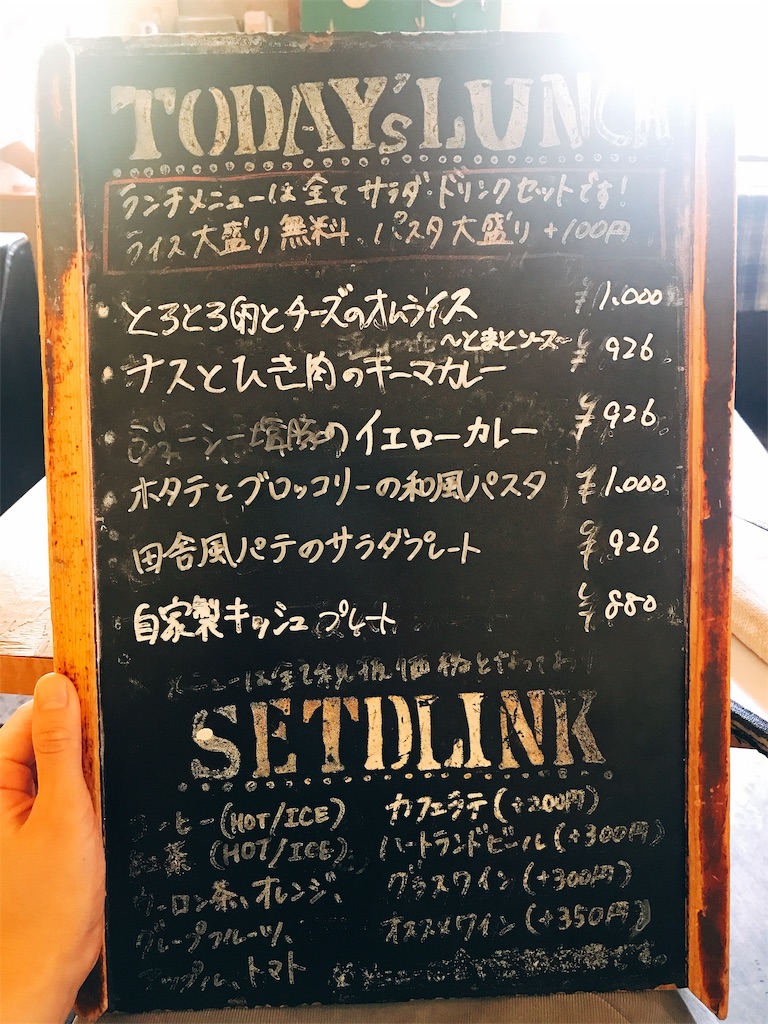 TODAY'S LUNCH
ランチメニューは全てサラダ・ドリンクセットです!
ライス大盛り無料、パスタ大盛り+100円
・とろとろ卵とチーズのオムライス ¥1.000
〜とまとソース〜
・ナスとひき肉のキーマカレー ¥926
・ のイエローカレー ¥926
ホタテとブロッコリーの和風パスタ ¥1.000
田舎風パテのサラダプレート ¥926
自家製キッシュプレート ¥880
メニューは全て税抜価格となっており
SETDLINK
コーヒー(HOT/ICE) カフェラテ(+200円)
紅茶(HOT/ICE) ハートランドビール(+300円)
ウーロン茶、オレンジ、 グラスワイン(+300円)
グレープフルーツ、 オススメワイン(+350円)
アップル、トマト